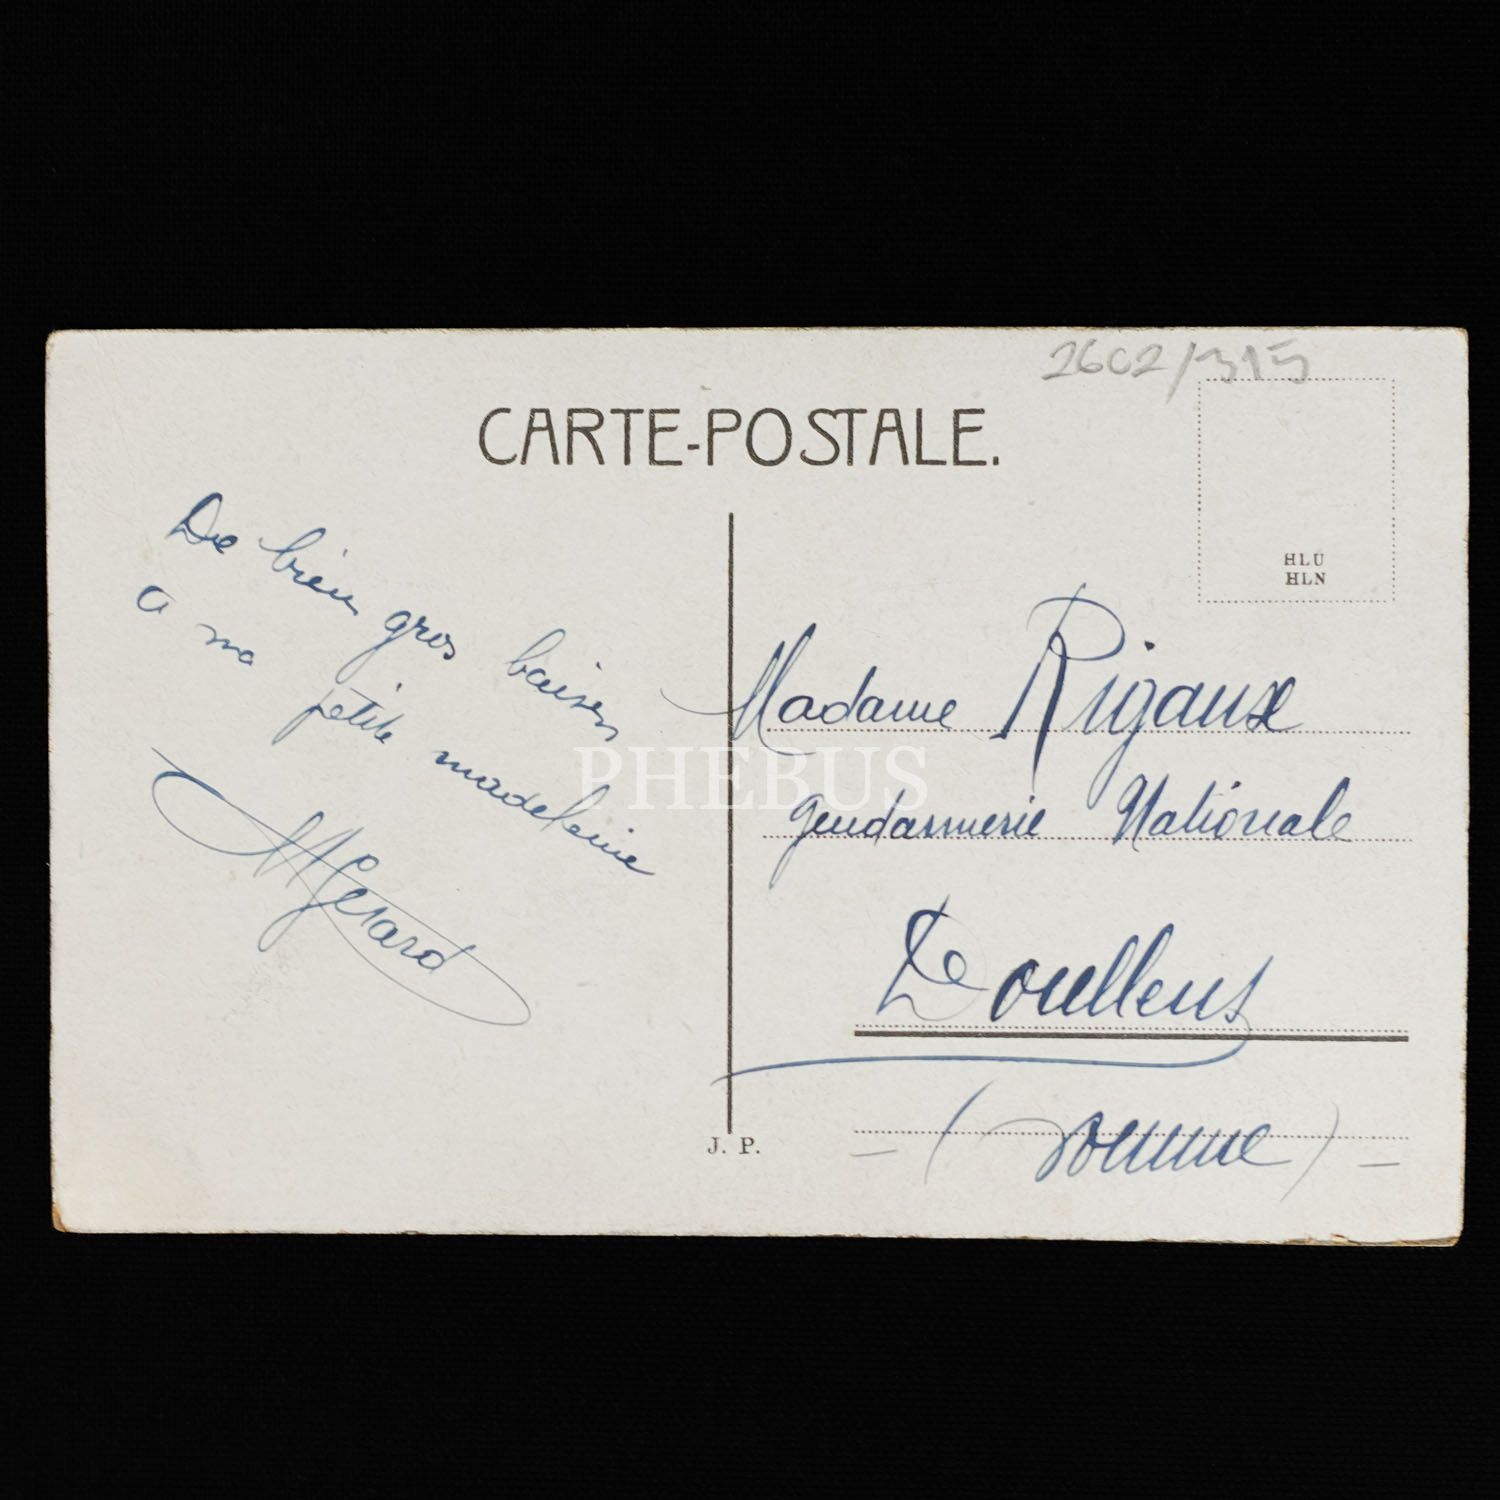 2602/315
CARTE-POSTALE.
HLU
HLN
De bien gros baisers
a ma petite madeleine
MGerard
Madame Rigaux
Gendarmerie Nationale
Doullens
(Somme)
J. P.
PHEBUS